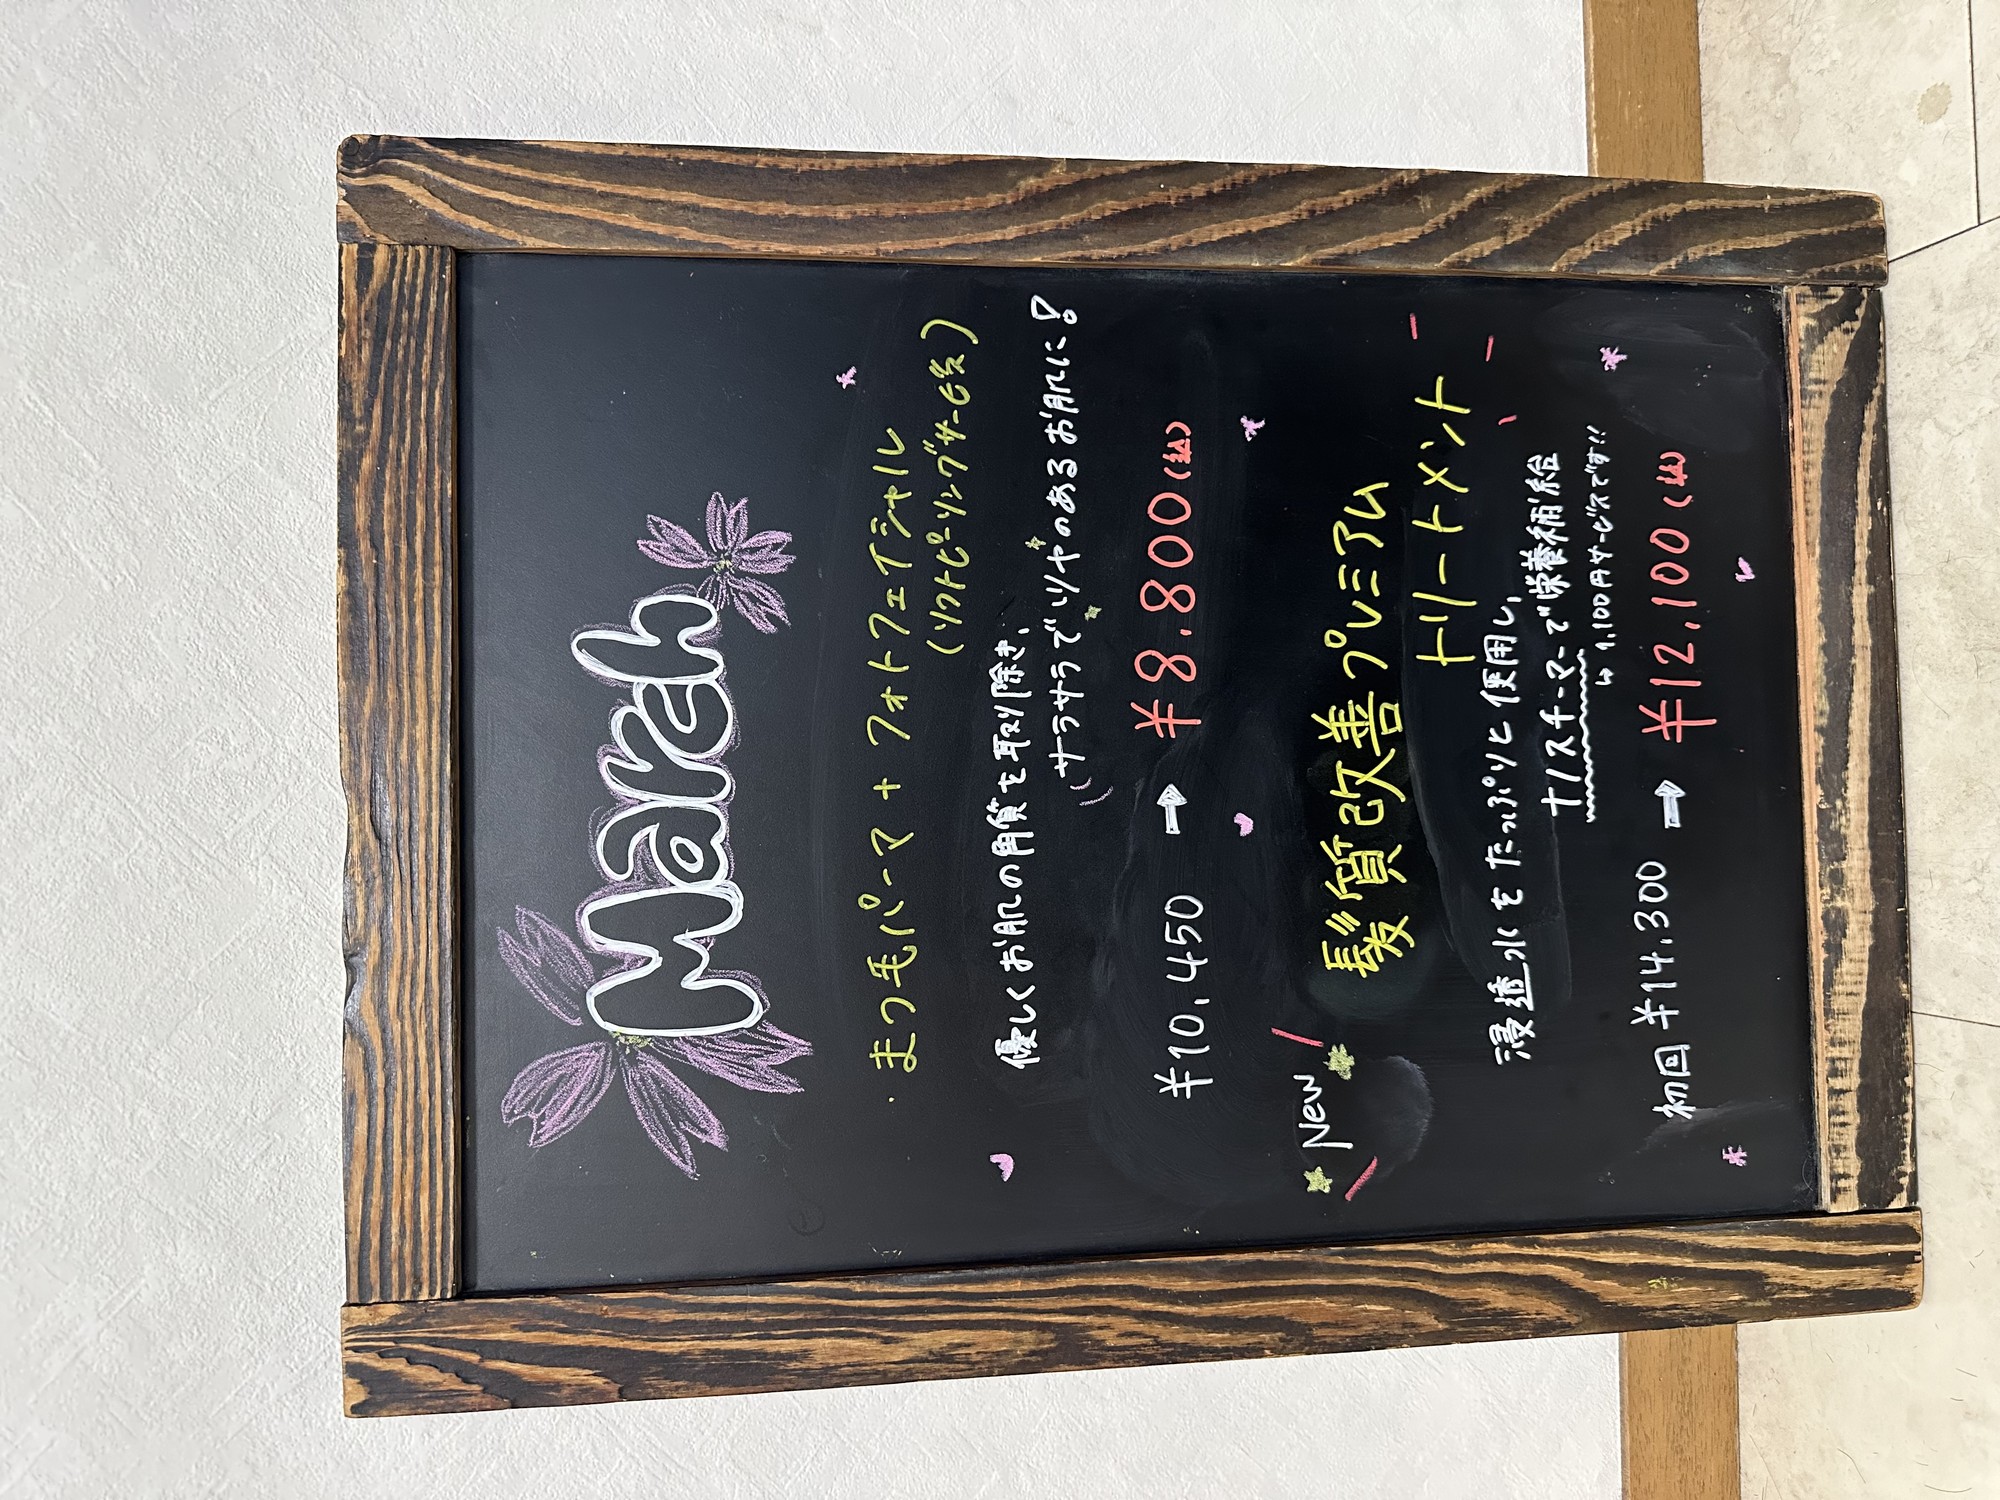 March
・まつ毛パーマ + フォトフェイシャル
(ソフトピーリングサービス)
優しくお肌の角質を取り除き、
サラサラでツヤのあるお肌に!
¥10,450 → ¥8.800(込)
New
髪質改善プレミアム
トリートメント
浸透水をたっぷりと使用し、
ナノスチーマーで栄養補給
↳ 1,100円サービスです!!
初回 ¥14.300 → ¥12,100(込)